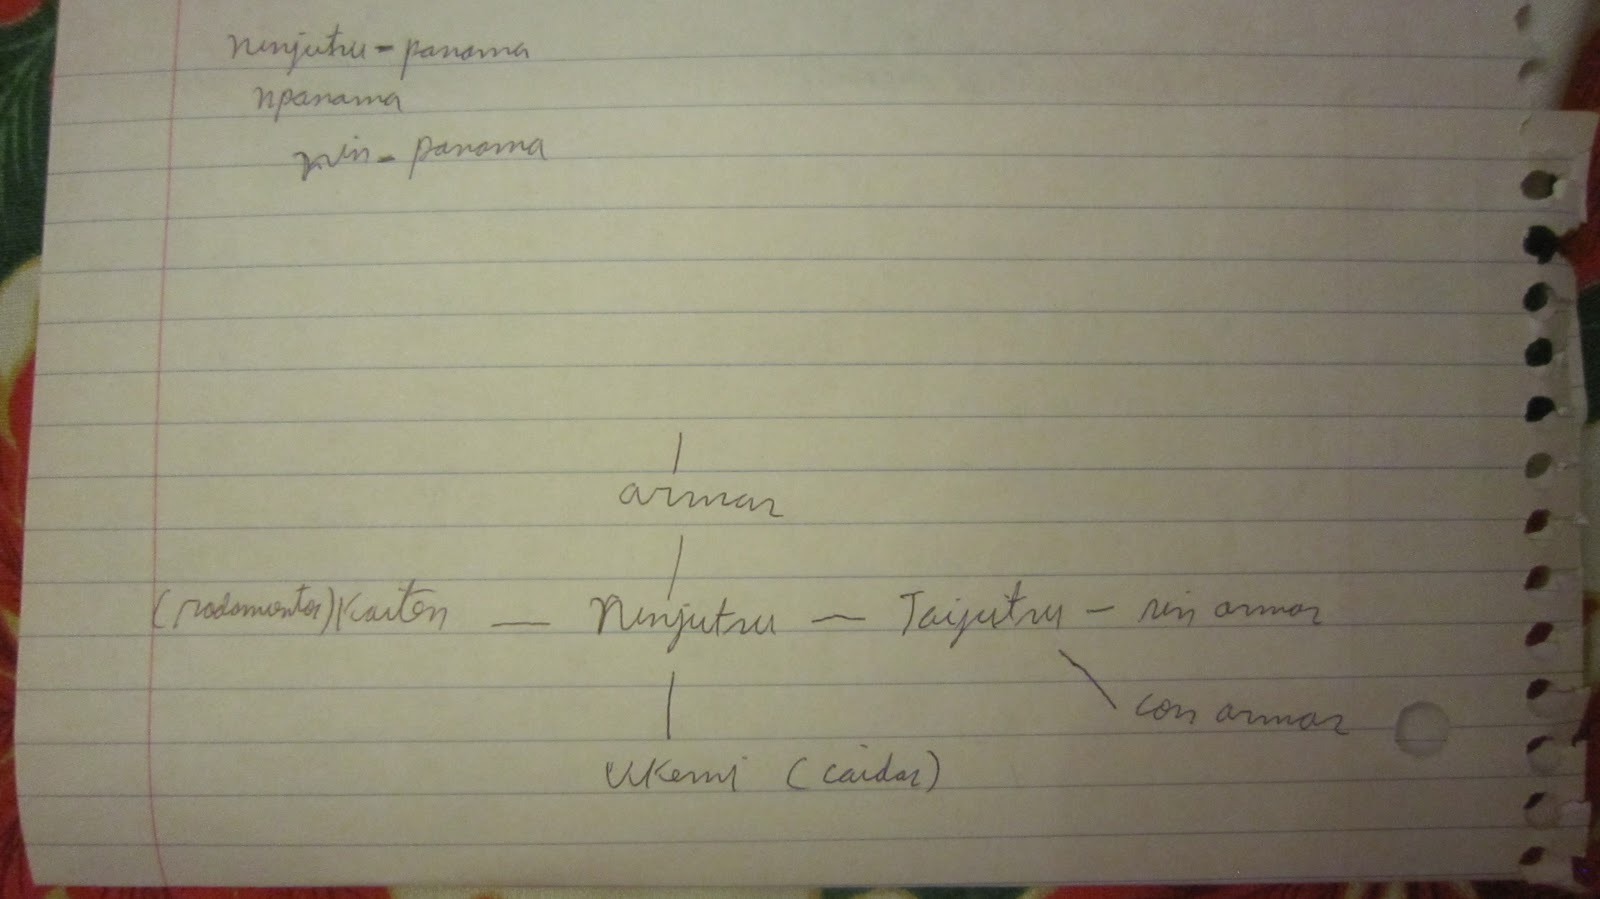 Ninjutsu - panama
npanama
- panama
armas
(rodamientos) Kaiten — Ninjutsu — Taijutsu - sin armas
con armas
Ukemi (caidas)